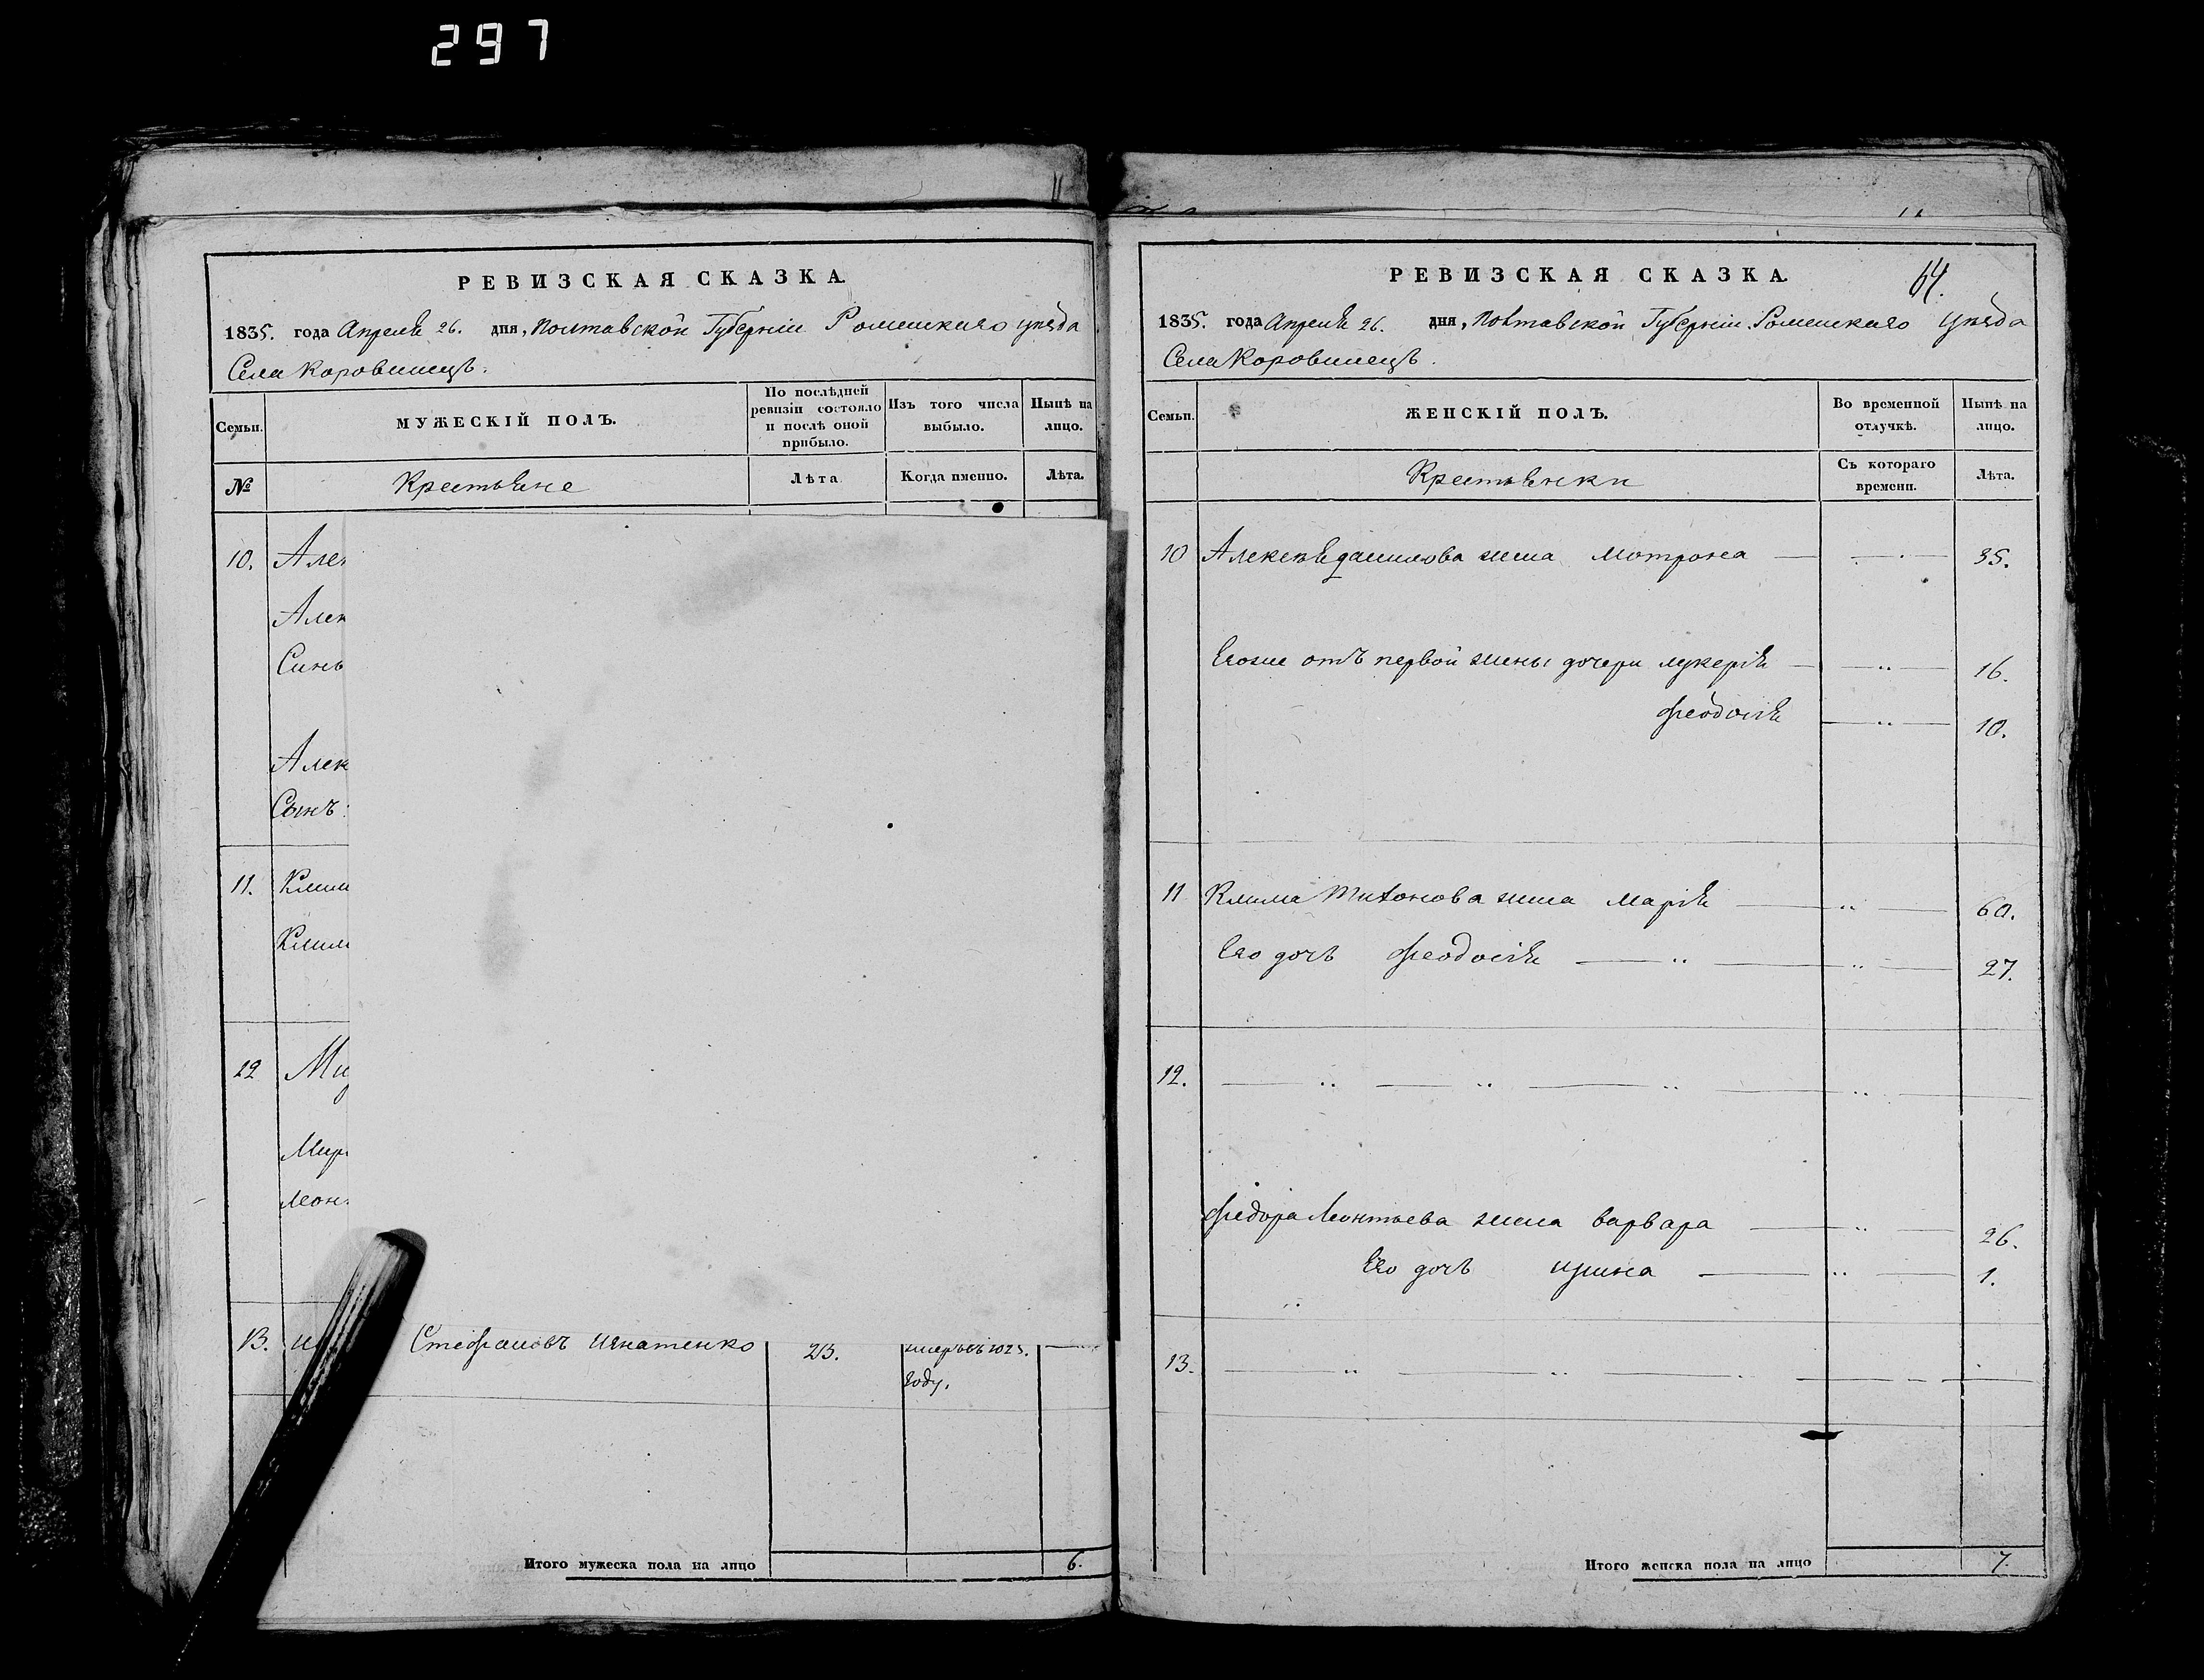 297
РЕВИЗСКАЯ СКАЗКА
1835. года Апреля 26. дня, Полтавской Губерніи Роменскаго уезда
Села Коровинецъ.
Семьи.
МУЖЕСКІЙ ПОЛЪ.
По послѣдней ревизіи состояло и послѣ оной прибыло.
Изъ того числа выбыло.
Нынѣ на лицо.
№
Крестьяне
Лѣта
Когда именно.
Лѣта.
10. Алек
Алек
Синъ
Алек
Сынъ
11. Клим
Клим
12 Ми
Мир
Леон
13. Стефановъ Игнатенко 23. умеръ въ 1825.
году.
Итого мужеска пола на лицо 6.
РЕВИЗСКАЯ СКАЗКА.
64.
1835. года Апреля 26. дня, Полтавской Губерніи Роменскаго уезда
Села Коровинецъ.
Семьи.
ЖЕНСКІЙ ПОЛЪ.
Во временной отлучкѣ.
Нынѣ на лицо.
Крестьянки
Съ котораго времени.
Лѣта.
10 Алексея Данилова жена Мотрона 35.
Егоже отъ первой жены дочери Лукерія 16.
Феодосія 10.
11 Клима Тихонова жена Марія 60.
Его дочь Феодосія 27.
12.
Федора Леонтьева жена Варвара 26.
Его дочь Ирина 1.
13.
Итого женска пола на лицо 7.